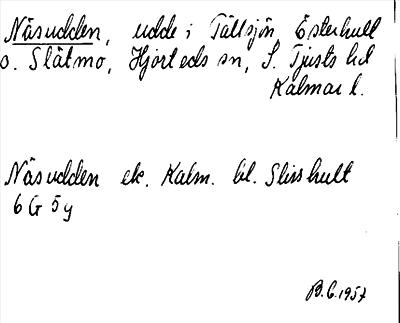 Näsudden, udde i Tällsjön, Österhult
o. Slätmo, Hjorteds sn, S. Tjusts hd
Kalmar l.
Näsudden ek. Kalm. bl. Slisshult
6 G 5 y
B.G. 1957